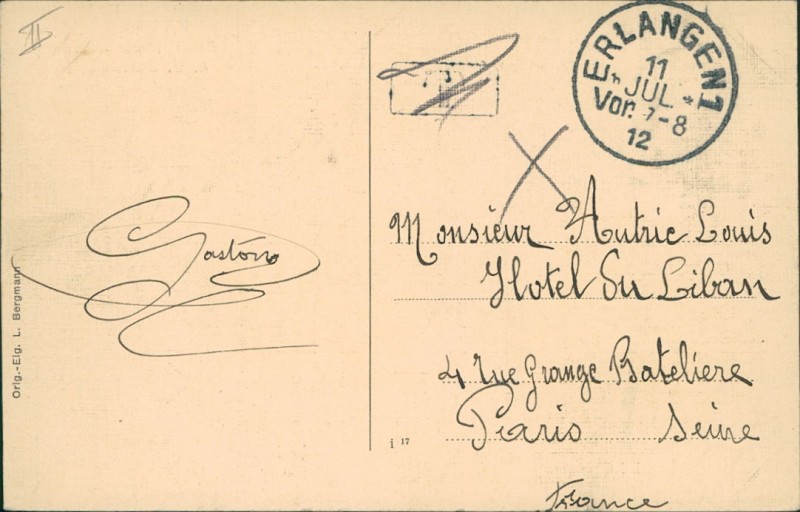 II
T
ERLANGEN 1
11
JUL. *
Vor. 7-8
12
X
Monsieur Autric Louis
Hotel Du Liban
4 rue Grange Bateliere
Paris Seine
France
Gaston
Orig.-Eig. L. Bergmann
i 17